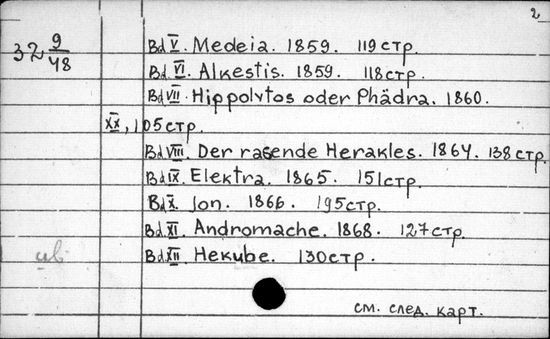 2
32 9/48
Bd V. Medeia. 1859. 119 стр.
Bd. VI. Alkestis. 1859. 118 стр.
Bd VII. Hippolytos oder Phädra. 1860.
XX, 105 стр.
Bd VIII. Der rasende Herakles. 1864. 138 стр.
Bd IX. Elektra. 1865. 151 стр.
Bd X. Jon. 1866. 195 стр.
Bd. XI. Andromache. 1868. 127 стр.
Bd. XII. Hekube. 130 стр.
см. след. карт.